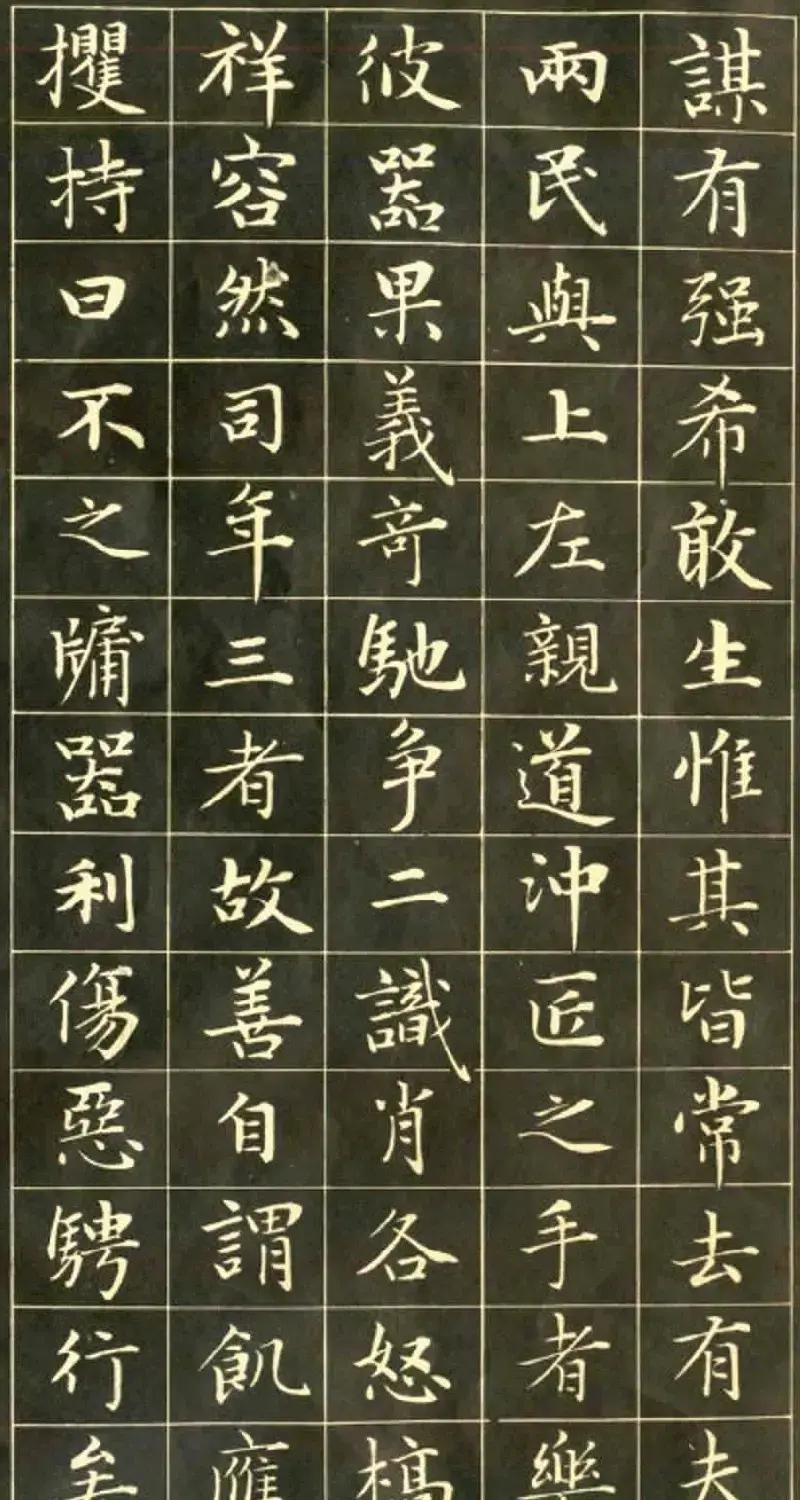 謀有强希敢生惟其皆常去有夫
兩民與上左親道沖匠之手者樂
彼器果義奇馳爭二識肖各怒槁
祥容然司年三者故善自謂飢應
攫持曰不之牗器利傷惡騁行矣